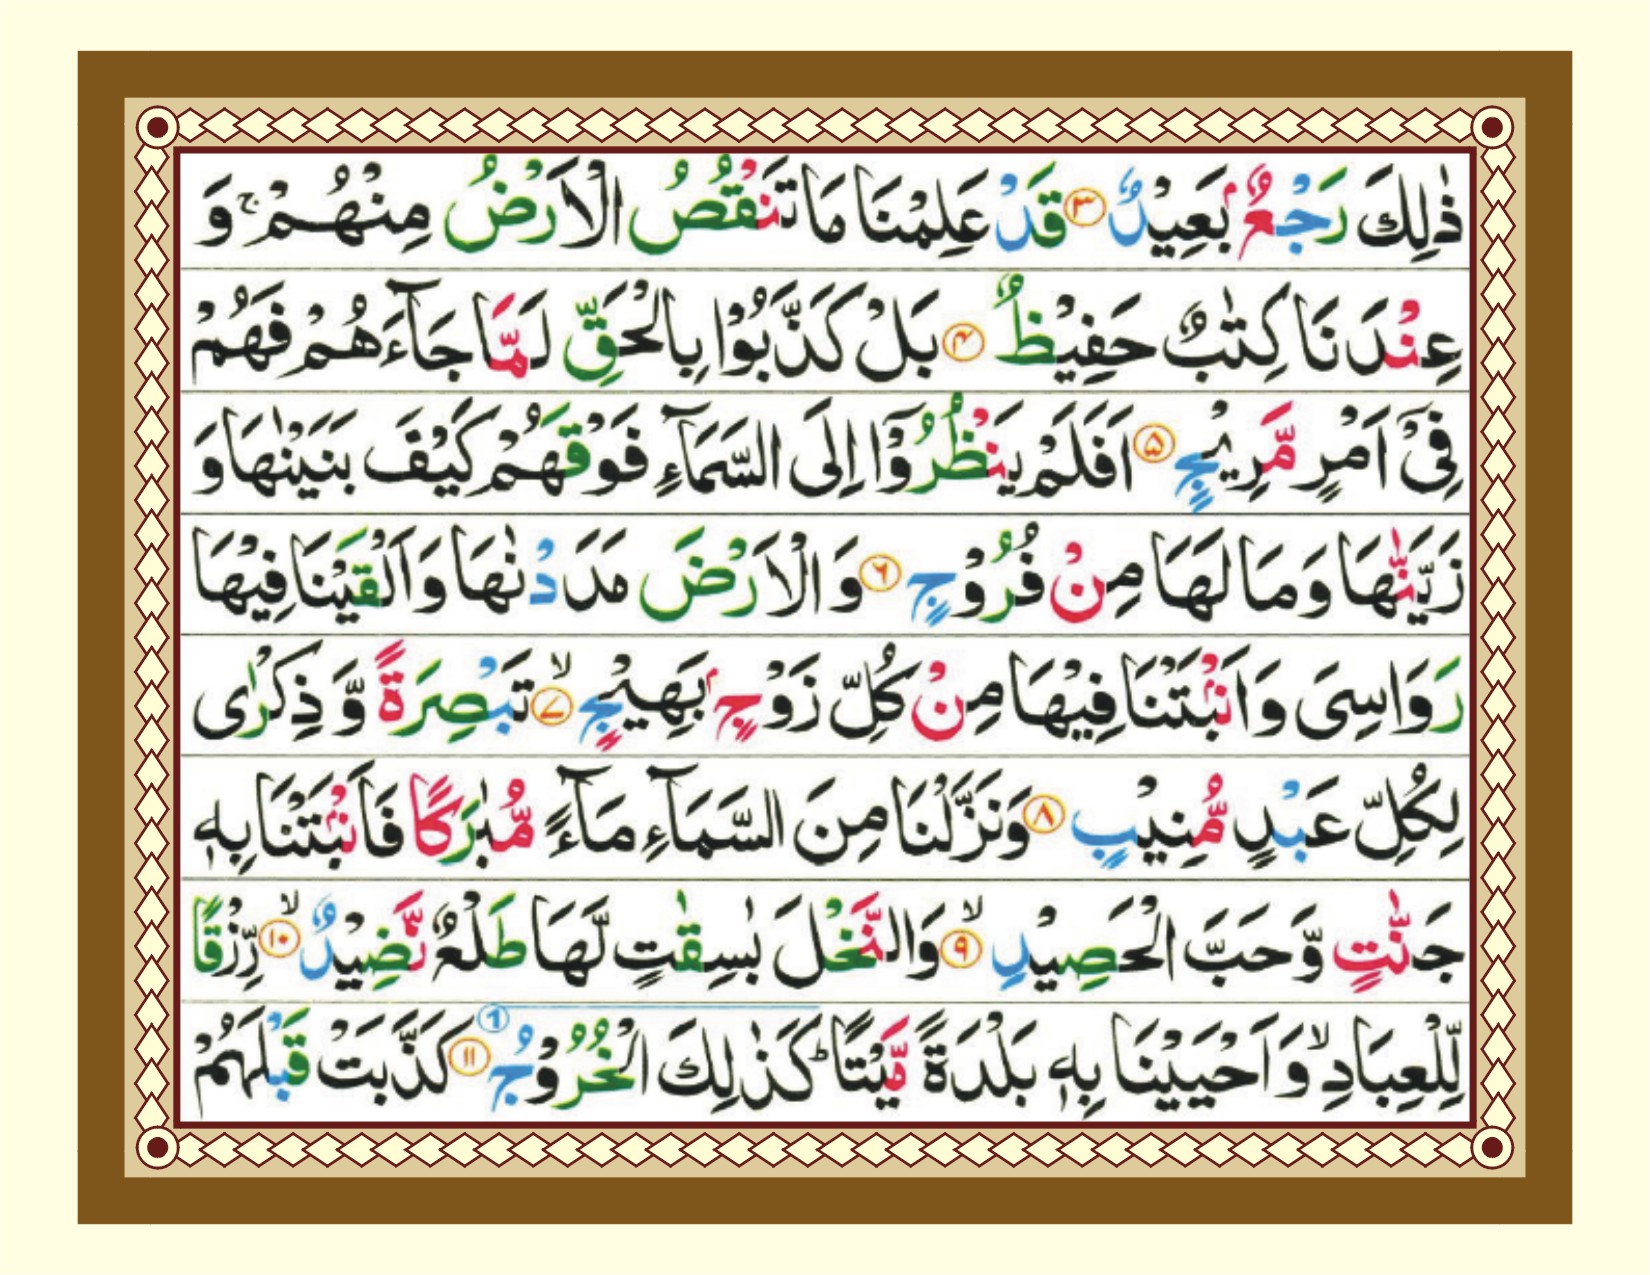 ذٰلِكَ رَجْعٌۢ بَعِيْدٌ ۳ قَدْ عَلِمْنَا مَا تَنْقُصُ الْاَرْضُ مِنْهُمْ ۚ وَ
عِنْدَنَا كِتٰبٌ حَفِيْظٌ ۴ بَلْ كَذَّبُوْا بِالْحَقِّ لَمَّا جَآءَهُمْ فَهُمْ
فِیْۤ اَمْرٍ مَّرِيْجٍ ۵ اَفَلَمْ يَنْظُرُوْۤا اِلَى السَّمَآءِ فَوْقَهُمْ كَيْفَ بَنَيْنٰهَا وَ
زَيَّنّٰهَا وَمَا لَهَا مِنْ فُرُوْجٍ ۶ وَالْاَرْضَ مَدَدْنٰهَا وَاَلْقَيْنَا فِيْهَا
رَوَاسِیَ وَاَنْۢبَتْنَا فِيْهَا مِنْ كُلِّ زَوْجٍۭ بَهِيْجٍ ۷ ۙ تَبْصِرَةً وَّ ذِكْرٰی
لِكُلِّ عَبْدٍ مُّنِيْبٍ ۸ وَنَزَّلْنَا مِنَ السَّمَآءِ مَآءً مُّبٰرَكًا فَاَنْۢبَتْنَا بِهٖ
جَنّٰتٍ وَّحَبَّ الْحَصِيْدِ ۹ ۙ وَالنَّخْلَ بٰسِقٰتٍ لَّهَا طَلْعٌ نَّضِيْدٌ ۱۰ ۙ رِّزْقًا
لِّلْعِبَادِ ۙ وَاَحْيَيْنَا بِهٖ بَلْدَةً مَّيْتًا ؕ كَذٰلِكَ الْخُرُوْجُ ۱۱ ① كَذَّبَتْ قَبْلَهُمْ